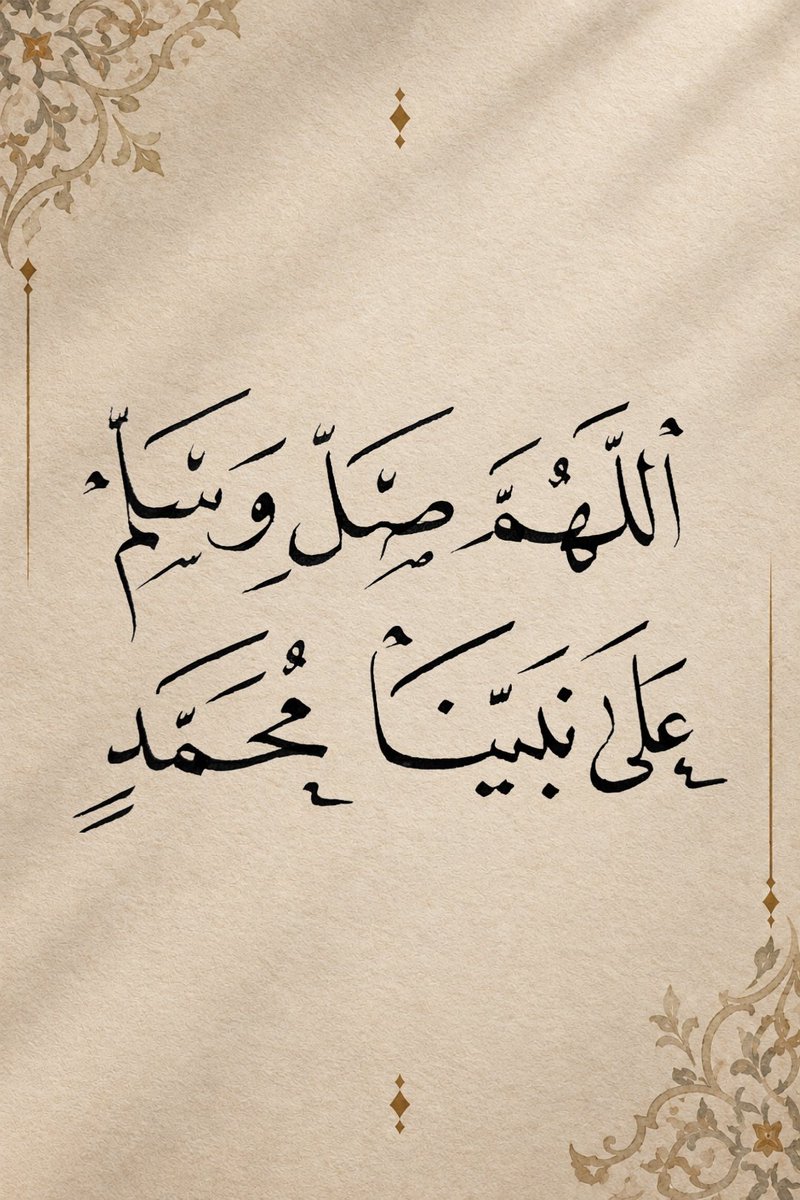 ٱللَّهُمَّ صَلِّ وَسَلِّمْ
عَلَىٰ نَبِيِّنَا مُحَمَّدٍ